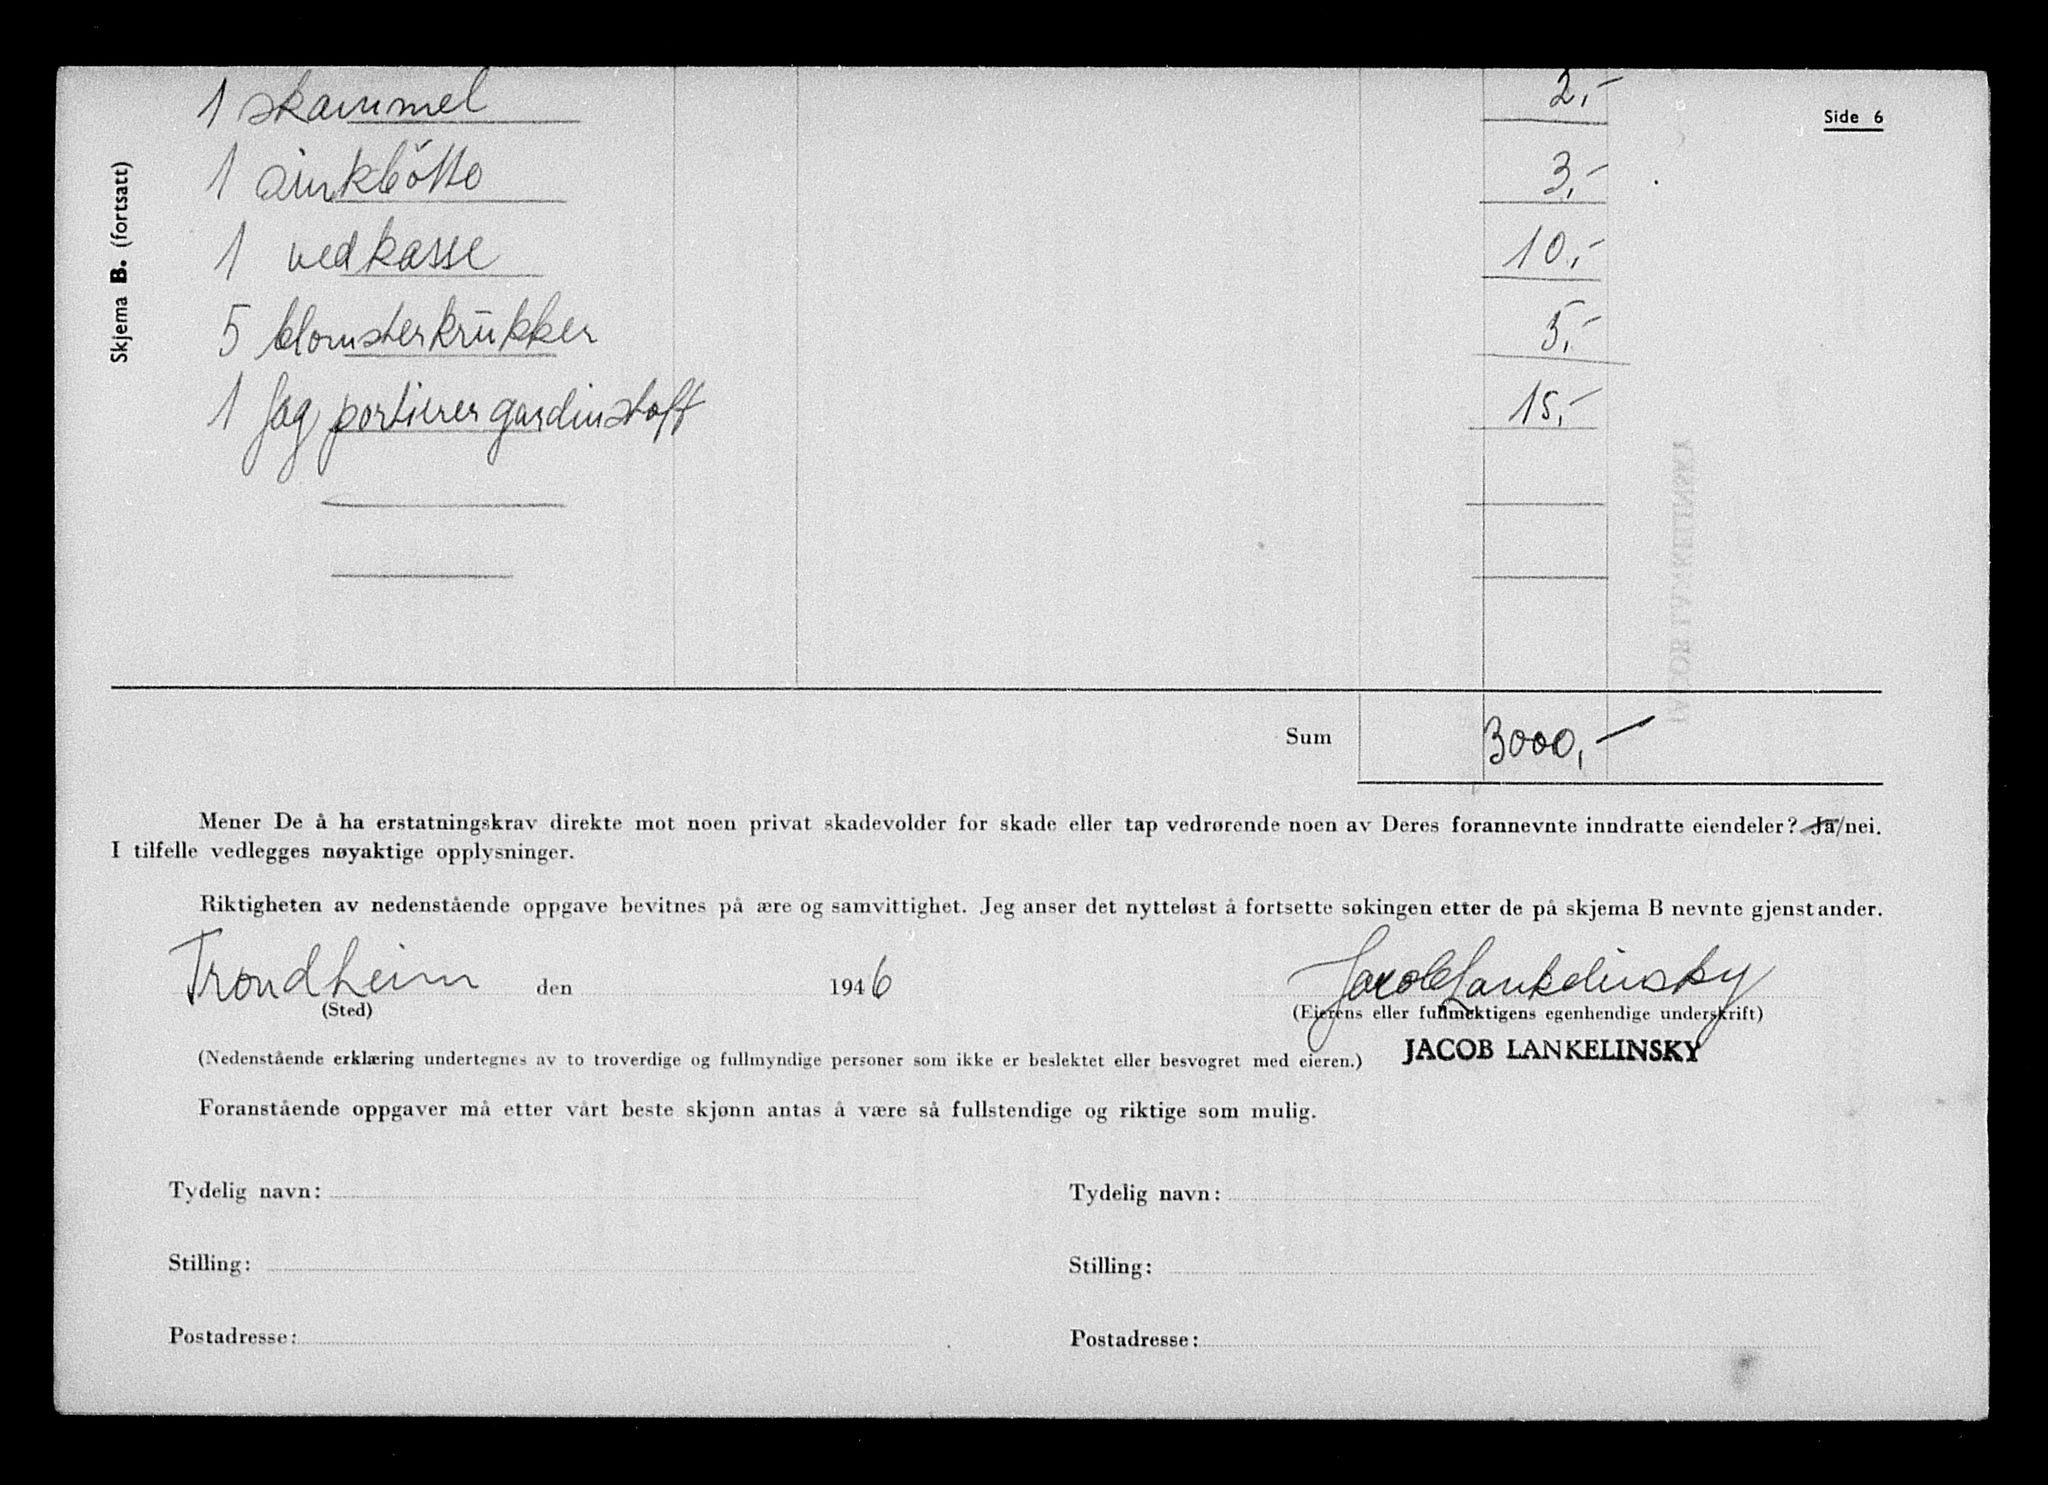 Side 6
Skjema B. (fortsatt)
1 skammel 2,-
1 sinkbötte 3,-
1 vedkasse 10,-
5 blomsterkrukker 5,-
1 fag portierer gardinstoff 15,-
Sum 3000,-
Mener De å ha erstatningskrav direkte mot noen privat skadevolder for skade eller tap vedrørende noen av Deres forannevnte inndratte eiendeler? Ja/nei.
I tilfelle vedlegges nøyaktige opplysninger.
Riktigheten av nedenstående oppgave bevitnes på ære og samvittighet. Jeg anser det nytteløst å fortsette søkingen etter de på skjema B nevnte gjenstander.
Trondheim den 1946 Jacob Lankelinsky
(Sted) (Eierens eller fullmektigens egenhendige underskrift)
(Nedenstående erklæring undertegnes av to troverdige og fullmyndige personer som ikke er beslektet eller besvogret med eieren.) JACOB LANKELINSKY
Foranstående oppgaver må etter vårt beste skjønn antas å være så fullstendige og riktige som mulig.
Tydelig navn: Tydelig navn:
Stilling: Stilling:
Postadresse: Postadresse:
JACOB LANKELINSKY